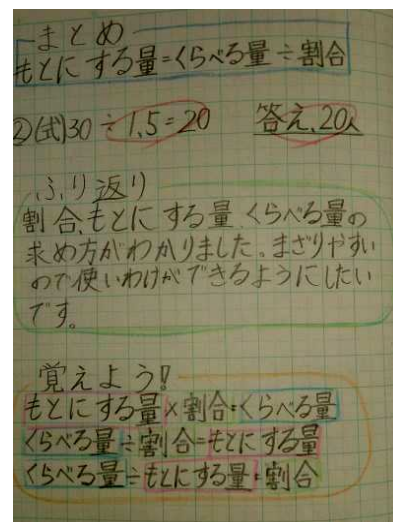 まとめ
もとにする量=くらべる量÷割合
②(式)30÷1,5=20 答え、20人
ふり返り
割合、もとにする量、くらべる量の
求め方がわかりました。まざりやすい
ので使いわけができるようにしたい
です。
覚えよう!!
もとにする量×割合=くらべる量
くらべる量÷割合=もとにする量
くらべる量÷もとにする量=割合